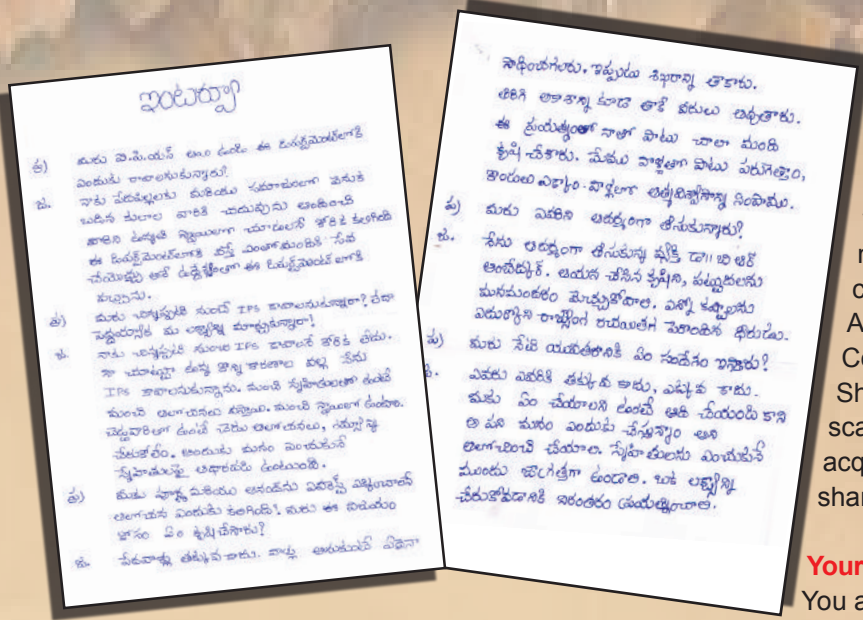 ఇంటర్వ్యూ
ప్ర) మీరు ఐ.పి.యస్ అయి ఉండి ఈ డిపార్ట్‌మెంట్‌లోకి
ఎందుకు రావాలనుకున్నారు?
జ. నాకు పేదపిల్లలకు మరియు సమాజంలో వెనుక
బడిన కులాల వారికి చదువును అందించి
వారిని ఉన్నత స్థాయిలో చూడాలనే కోరిక కలిగింది
ఈ డిపార్ట్‌మెంట్‌లోకి వస్తే ఎంతోమందికి సేవ
చేయొచ్చు అనే ఉద్దేశ్యంతో ఈ డిపార్ట్‌మెంట్ లోకి
వచ్చాను.
ప్ర) మీరు చిన్నప్పటి నుంచే IPS కావాలనుకున్నారా? లేదా
పెద్దయ్యాక మీ లక్ష్యాన్ని మార్చుకున్నారా!
జ. నాకు చిన్నప్పటి నుంచి IPS కావాలనే కోరిక లేదు.
నా చుట్టూ ఉన్న కొన్ని కారణాల వల్ల నేను
IPS కావాలనుకున్నాను. మంచి స్నేహితులతో ఉంటే
మంచి ఆలోచనలు వస్తాయి. మంచి స్థాయిలో ఉంటాం.
చెడ్డవారితో ఉంటే చెడు ఆలోచనలు,
చేరుకోలేం. అందుకు మనం ఎంచుకునే
స్నేహితులపై ఆధారపడి ఉంటుంది.
ప్ర) మీకు పూర్ణ మరియు ఆనంద్‌ను ఎవరెస్ట్ ఎక్కించాలనే
ఆలోచన ఎందుకు కలిగింది! మీరు ఈ విజయం
కోసం ఏం కృషి చేశారు?
జ. పేదవాళ్లు తక్కువ కాదు. వాళ్లు అనుకుంటే ఏదైనా
సాధించగలరు. ఇప్పుడు శిఖరాన్ని తాకారు.
తిరిగి ఆకాశాన్ని కూడా తాకే వీరులు అవుతారు.
ఈ ప్రయత్నంలో నాతో పాటు చాలా మంది
కృషి చేశారు. మేము వాళ్లతో పాటు పరుగెత్తాం,
కొండలు ఎక్కాం. వాళ్లలో ఆత్మవిశ్వాసాన్ని నింపాము.
ప్ర) మీరు ఎవరిని ఆదర్శంగా తీసుకున్నారు?
జ. నేను ఆదర్శంగా తీసుకున్న వ్యక్తి డా|| బి ఆర్
అంబేద్కర్. ఆయన చేసిన కృషిని, పట్టుదలను
మనమందరం మెచ్చుకోవాలి. ఎన్నో కష్టాలను
ఎదుర్కొని రాజ్యాంగ రచయితగా పేరొందిన ధీరుడు.
ప్ర) మీరు నేటి యువతరానికి ఏం సందేశం ఇస్తారు?
జ. ఎవరు ఎవరికి తక్కువ కాదు, ఎక్కువ కాదు.
మీకు ఏం చేయాలని ఉంటే అది చేయండి కాని
ఆ పని మనం ఎందుకు చేస్తున్నాం అని
ఆలోచించి చేయాలి. స్నేహితులను ఎంచుకునే
ముందు జాగ్రత్తగా ఉండాలి. ఒక లక్ష్యాన్ని
చేరుకోవడానికి నిరంతరం ప్రయత్నించాలి.
Your
You a